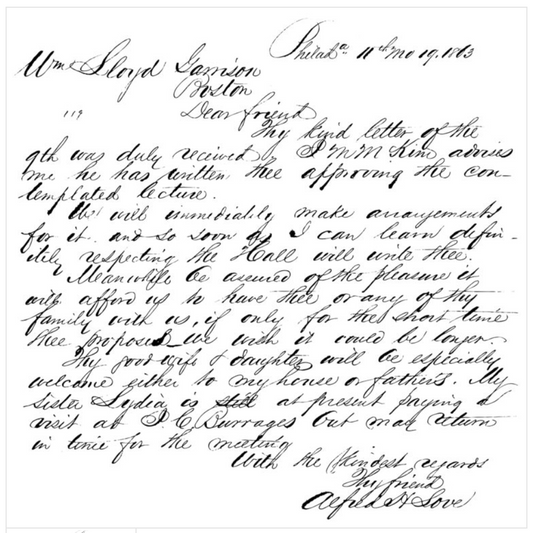 Philada 11th mo 19. 1863
Wm Lloyd Garrison
Boston
119
Dear friend
Thy kind letter of the
9th was duly received, J M M Kim advises
me he has written thee approving the con-
templated lecture.
We will immediately make arrangements
for it. and so soon as I can learn defin-
itely respecting the Hall will write thee.
Meanwhile be assured of the pleasure it
will afford us to have thee or any of thy
family with us, if only for the short time
thee proposes we wish it could be longer.
Thy good wife & daughter will be especially
welcome either to my house or father's. My
sister Lydia is still at present paying a
visit at J. C. Burrages but may return
in time for the meeting
With the kindest regards
Thy friend
Alfred H Love